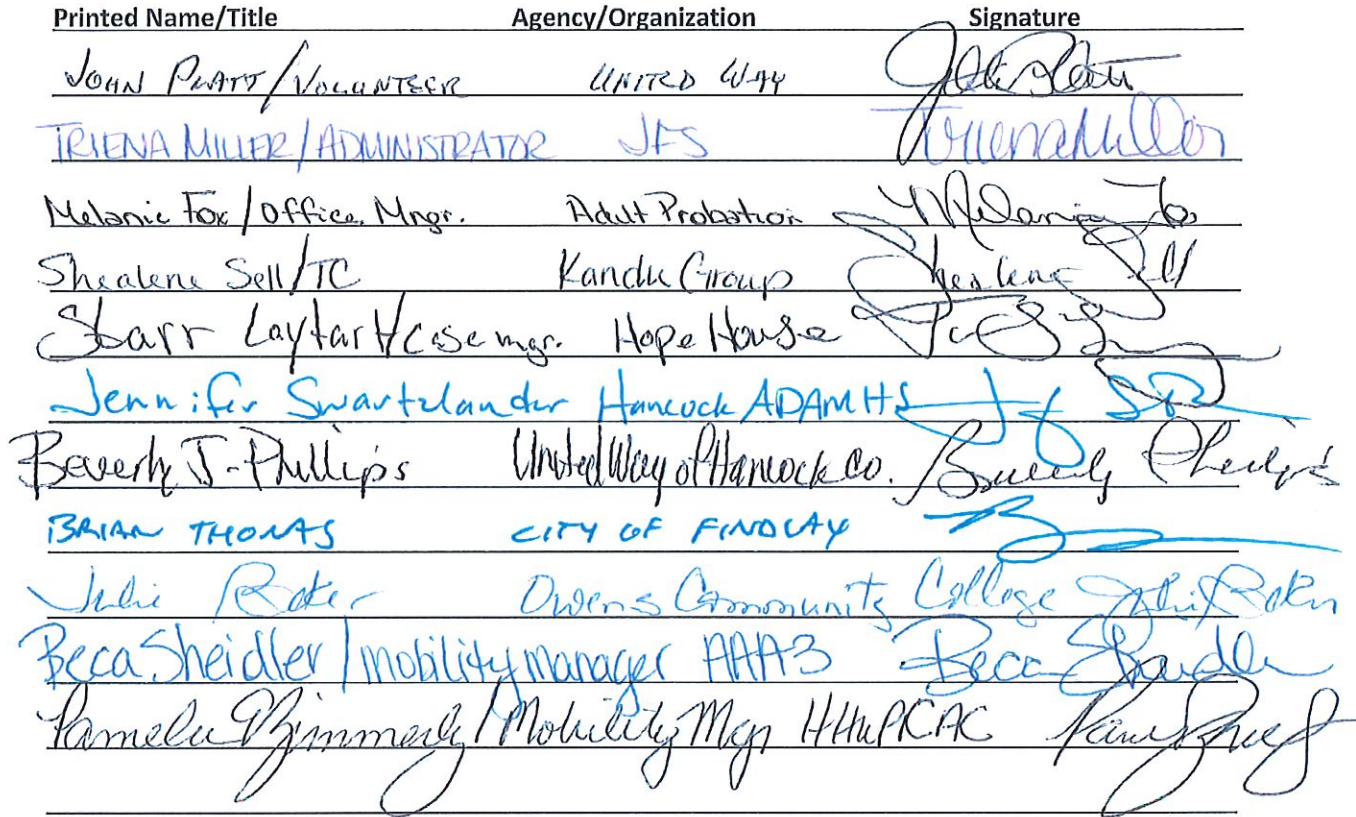 Printed Name/Title Agency/Organization Signature
JOHN PLATT/VOLUNTEER UNITED WAY John Platt
TRIENA MILLER/ADMINISTRATOR JFS Triena Miller
Melanie Fox/Office Mngr. Adult Probation Melanie Fox
Shealene Sell/TC Kandu Group Shealene Sell
Starr Laytart/Case mgr. Hope House
Jennifer Swartzlander Hancock ADAMHS
Beverly J. Phillips United Way of Hancock Co. Beverly Phillips
BRIAN THOMAS CITY OF FINDLAY
Julie Baker Owens Community College Julie Baker
Beca Sheidler/mobility manager AAA3 Beca Sheidler
Pamela Zimmerly/Mobility Mgr HHWPCAC